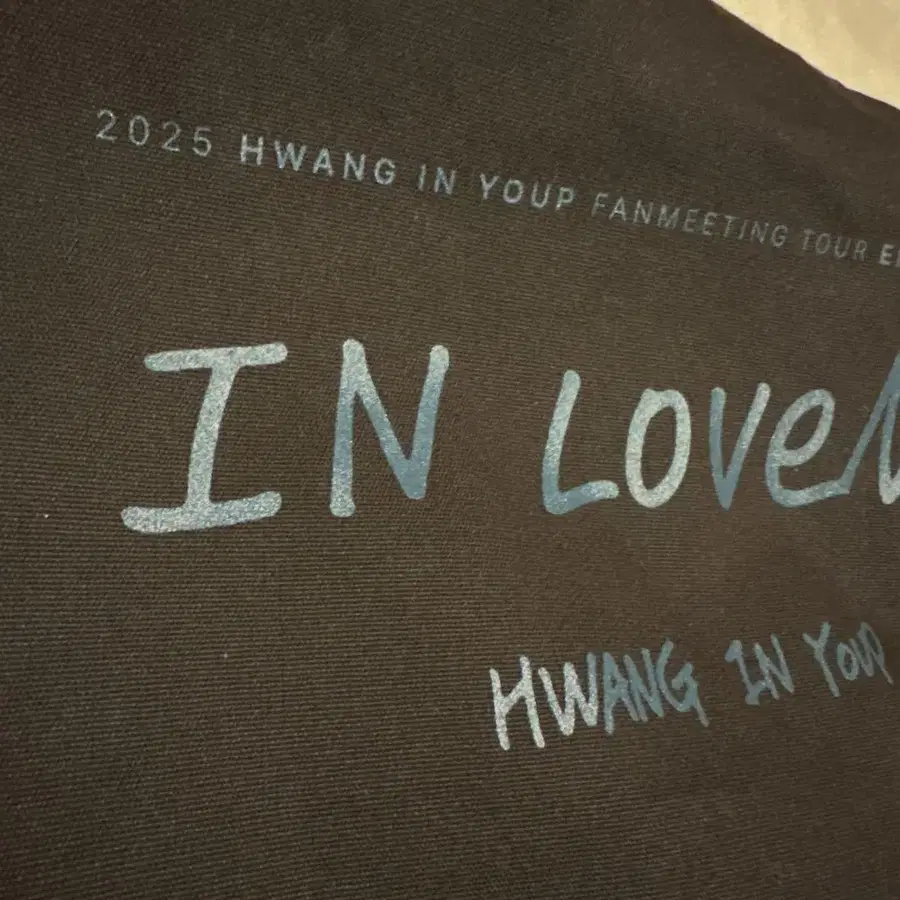 2025 HWANG IN YOUP FANMEETING TOUR
IN LOVE
HWANG IN YOUP